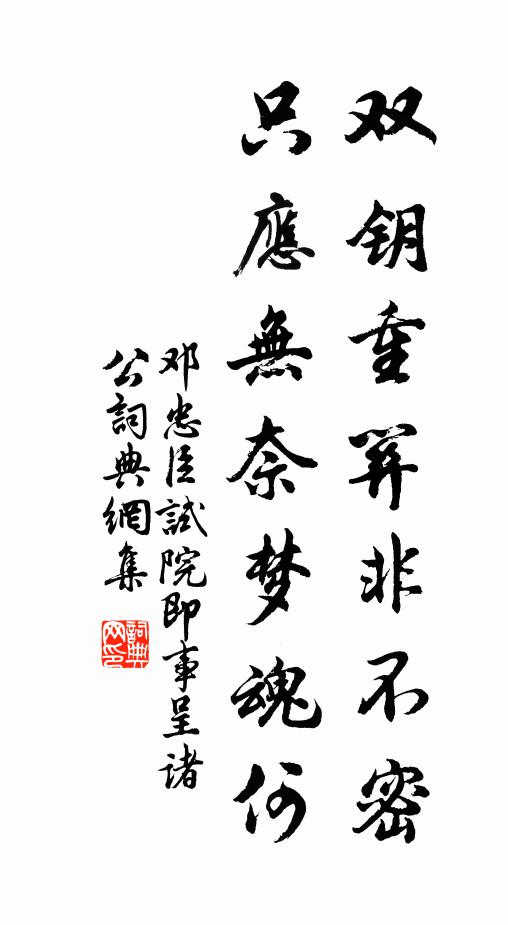 双钥重关非不密
只應無奈梦魂何
邓忠臣試院即事呈诸
公詞典網集
詞典
网印